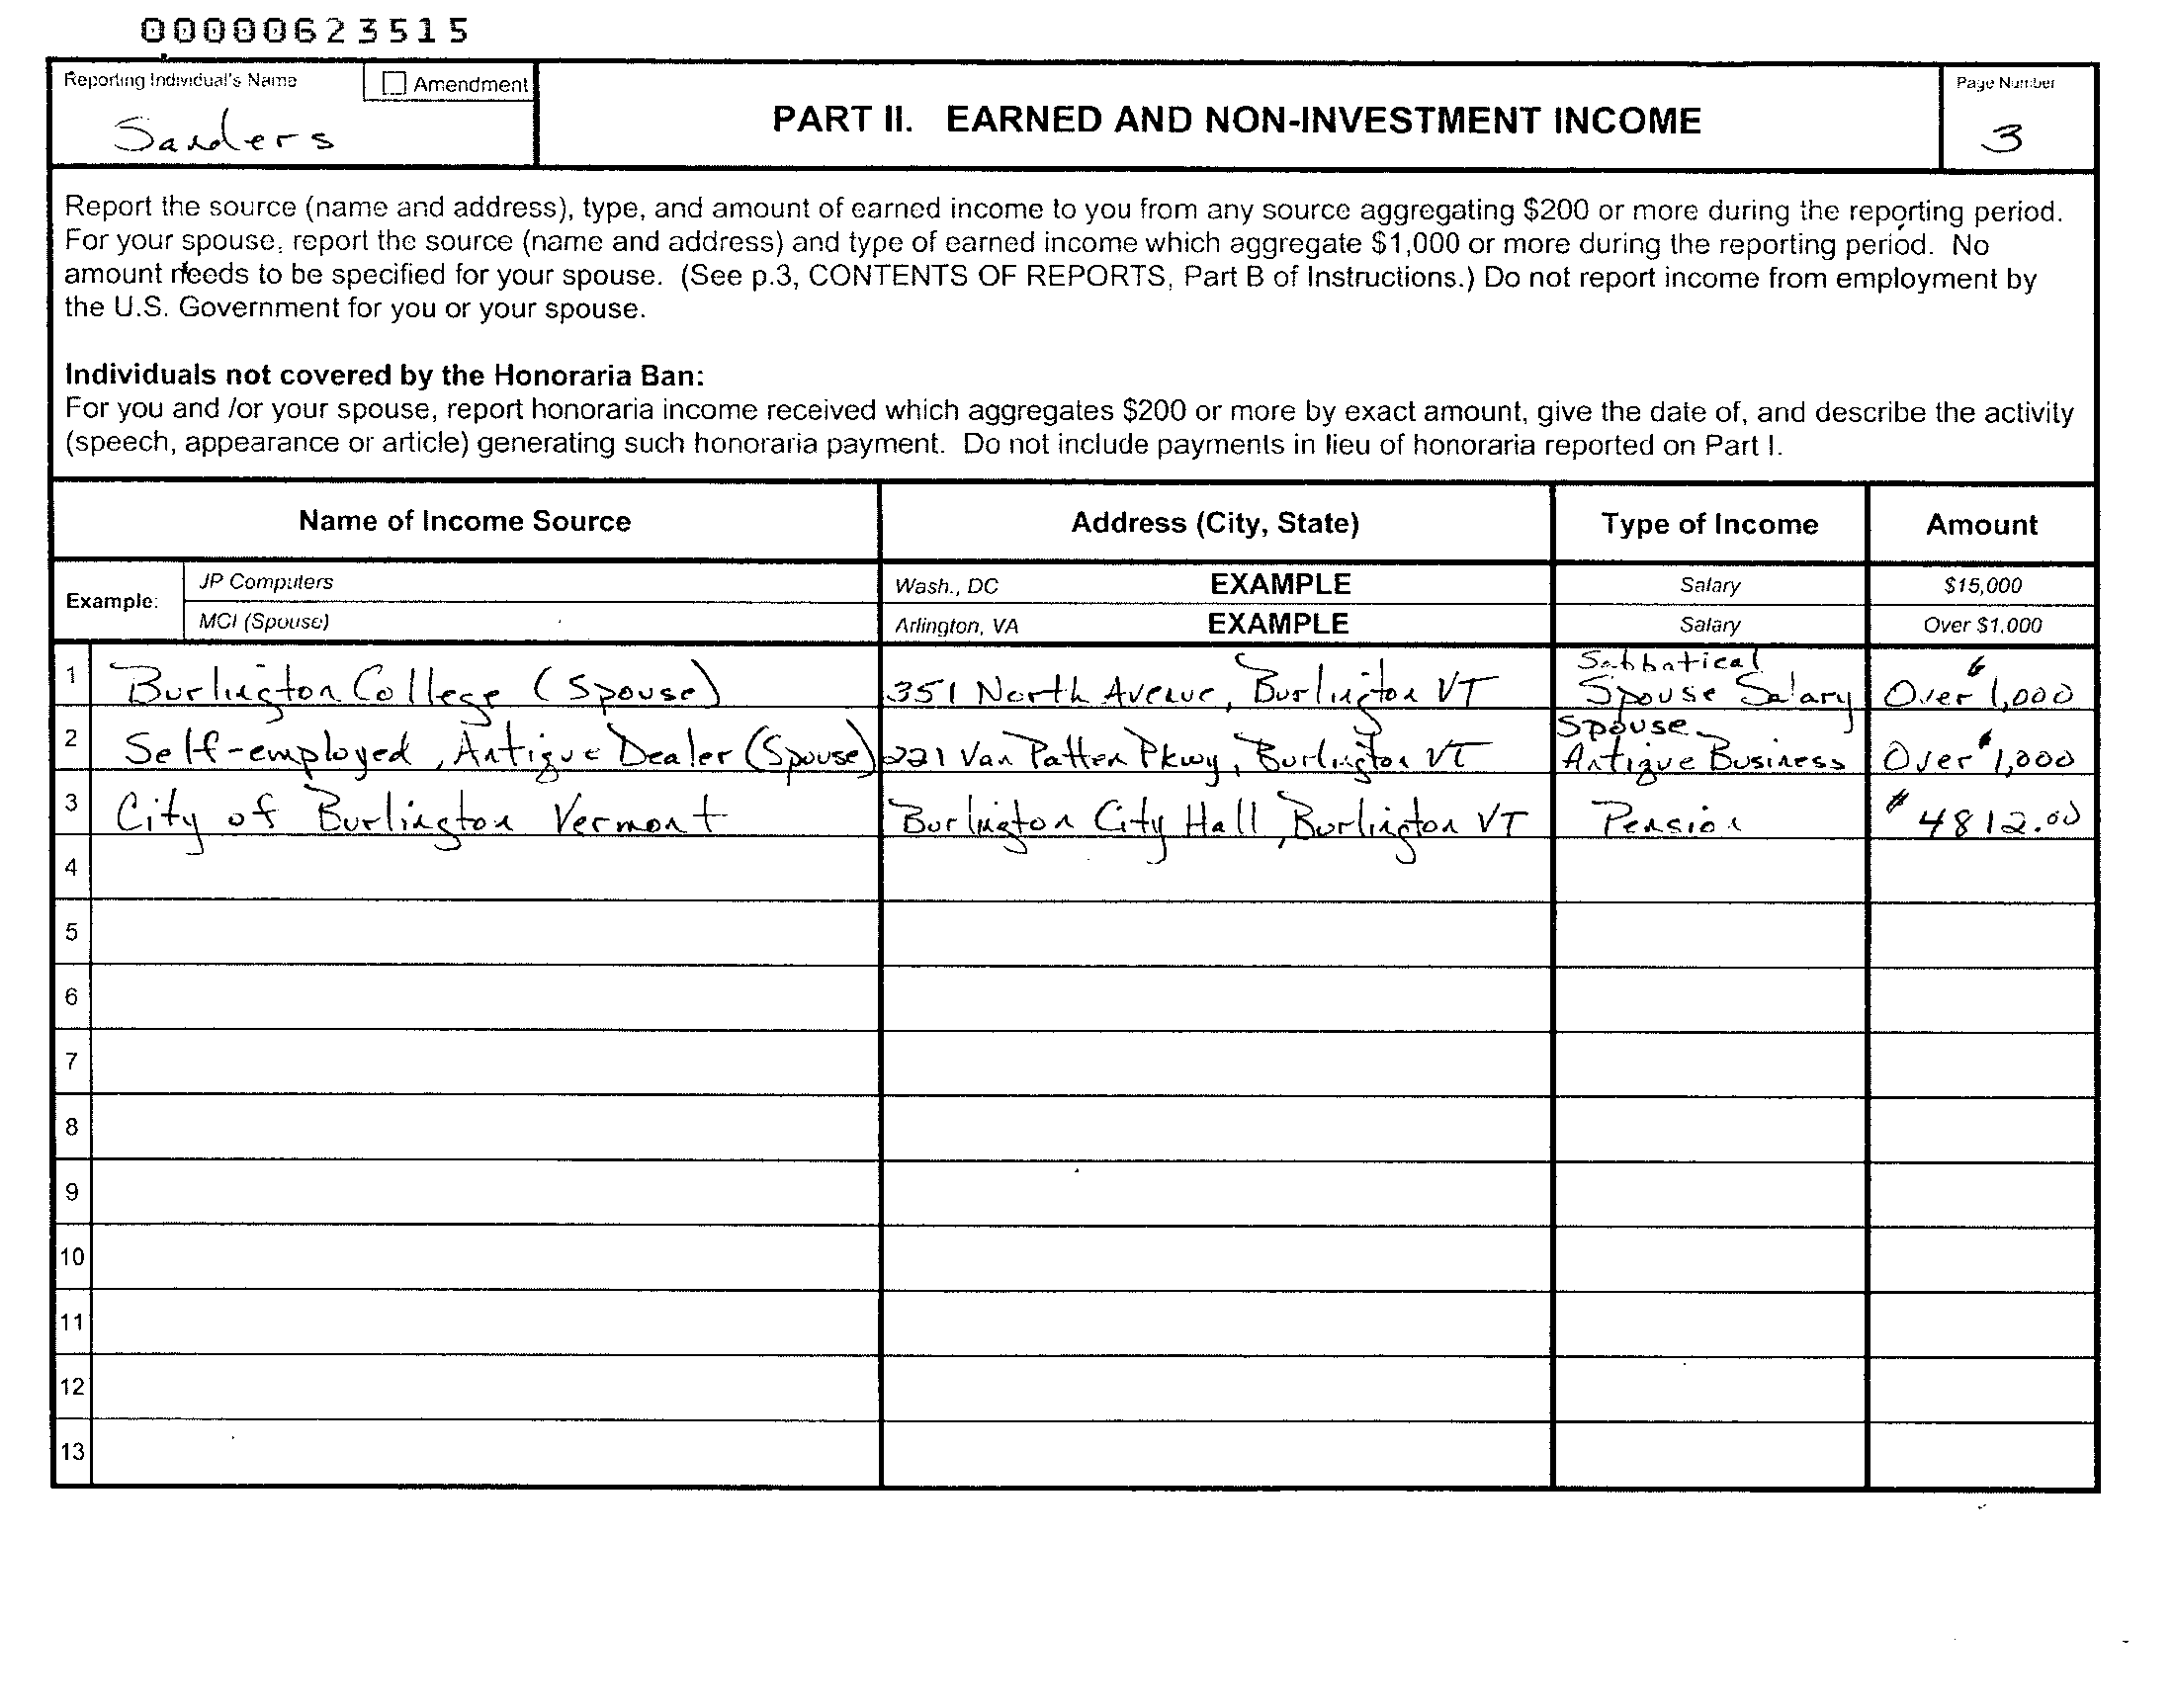 00000623515
Reporting Individual's Name
Amendment
Sanders
PART II. EARNED AND NON-INVESTMENT INCOME
Page Number
3
Report the source (name and address), type, and amount of earned income to you from any source aggregating $200 or more during the reporting period.
For your spouse, report the source (name and address) and type of earned income which aggregate $1,000 or more during the reporting period. No
amount needs to be specified for your spouse. (See p.3, CONTENTS OF REPORTS, Part B of Instructions.) Do not report income from employment by
the U.S. Government for you or your spouse.
Individuals not covered by the Honoraria Ban:
For you and /or your spouse, report honoraria income received which aggregates $200 or more by exact amount, give the date of, and describe the activity
(speech, appearance or article) generating such honoraria payment. Do not include payments in lieu of honoraria reported on Part I.
Name of Income Source Address (City, State) Type of Income Amount
Example:
JP Computers Wash., DC EXAMPLE Salary $15,000
MCI (Spouse) Arlington, VA EXAMPLE Salary Over $1,000
Sabbatical
1 Burlington College (Spouse) 351 North Avenue, Burlington VT Spouse Salary Over $1,000
Spouse
2 Self-employed, Antique Dealer (Spouse) 221 Van Patten Pkwy, Burlington VT Antique Business Over $1,000
3 City of Burlington Vermont Burlington City Hall, Burlington VT Pension $4812.00
4
5
6
7
8
9
10
11
12
13